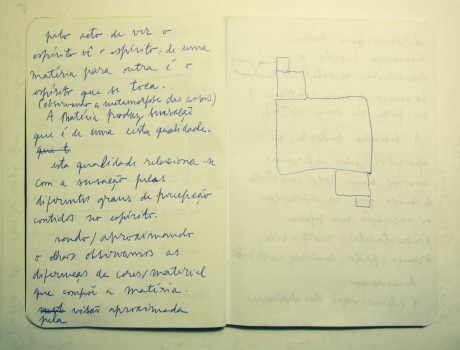 pelo acto de ver o
espírito vê o espírito, de uma
matéria para outra é o
espírito que se toca.
(observando a metamorfose das coisas)
A matéria produz sensação
que é de uma certa qualidade.
esta qualidade relaciona-se
com a sensação pelos
diferentes graus de percepção
contidos no espírito.
vendo/aproximando
o olhos observamos as
diferenças de cores/material
que compõe a matéria:
visão aproximada
pela